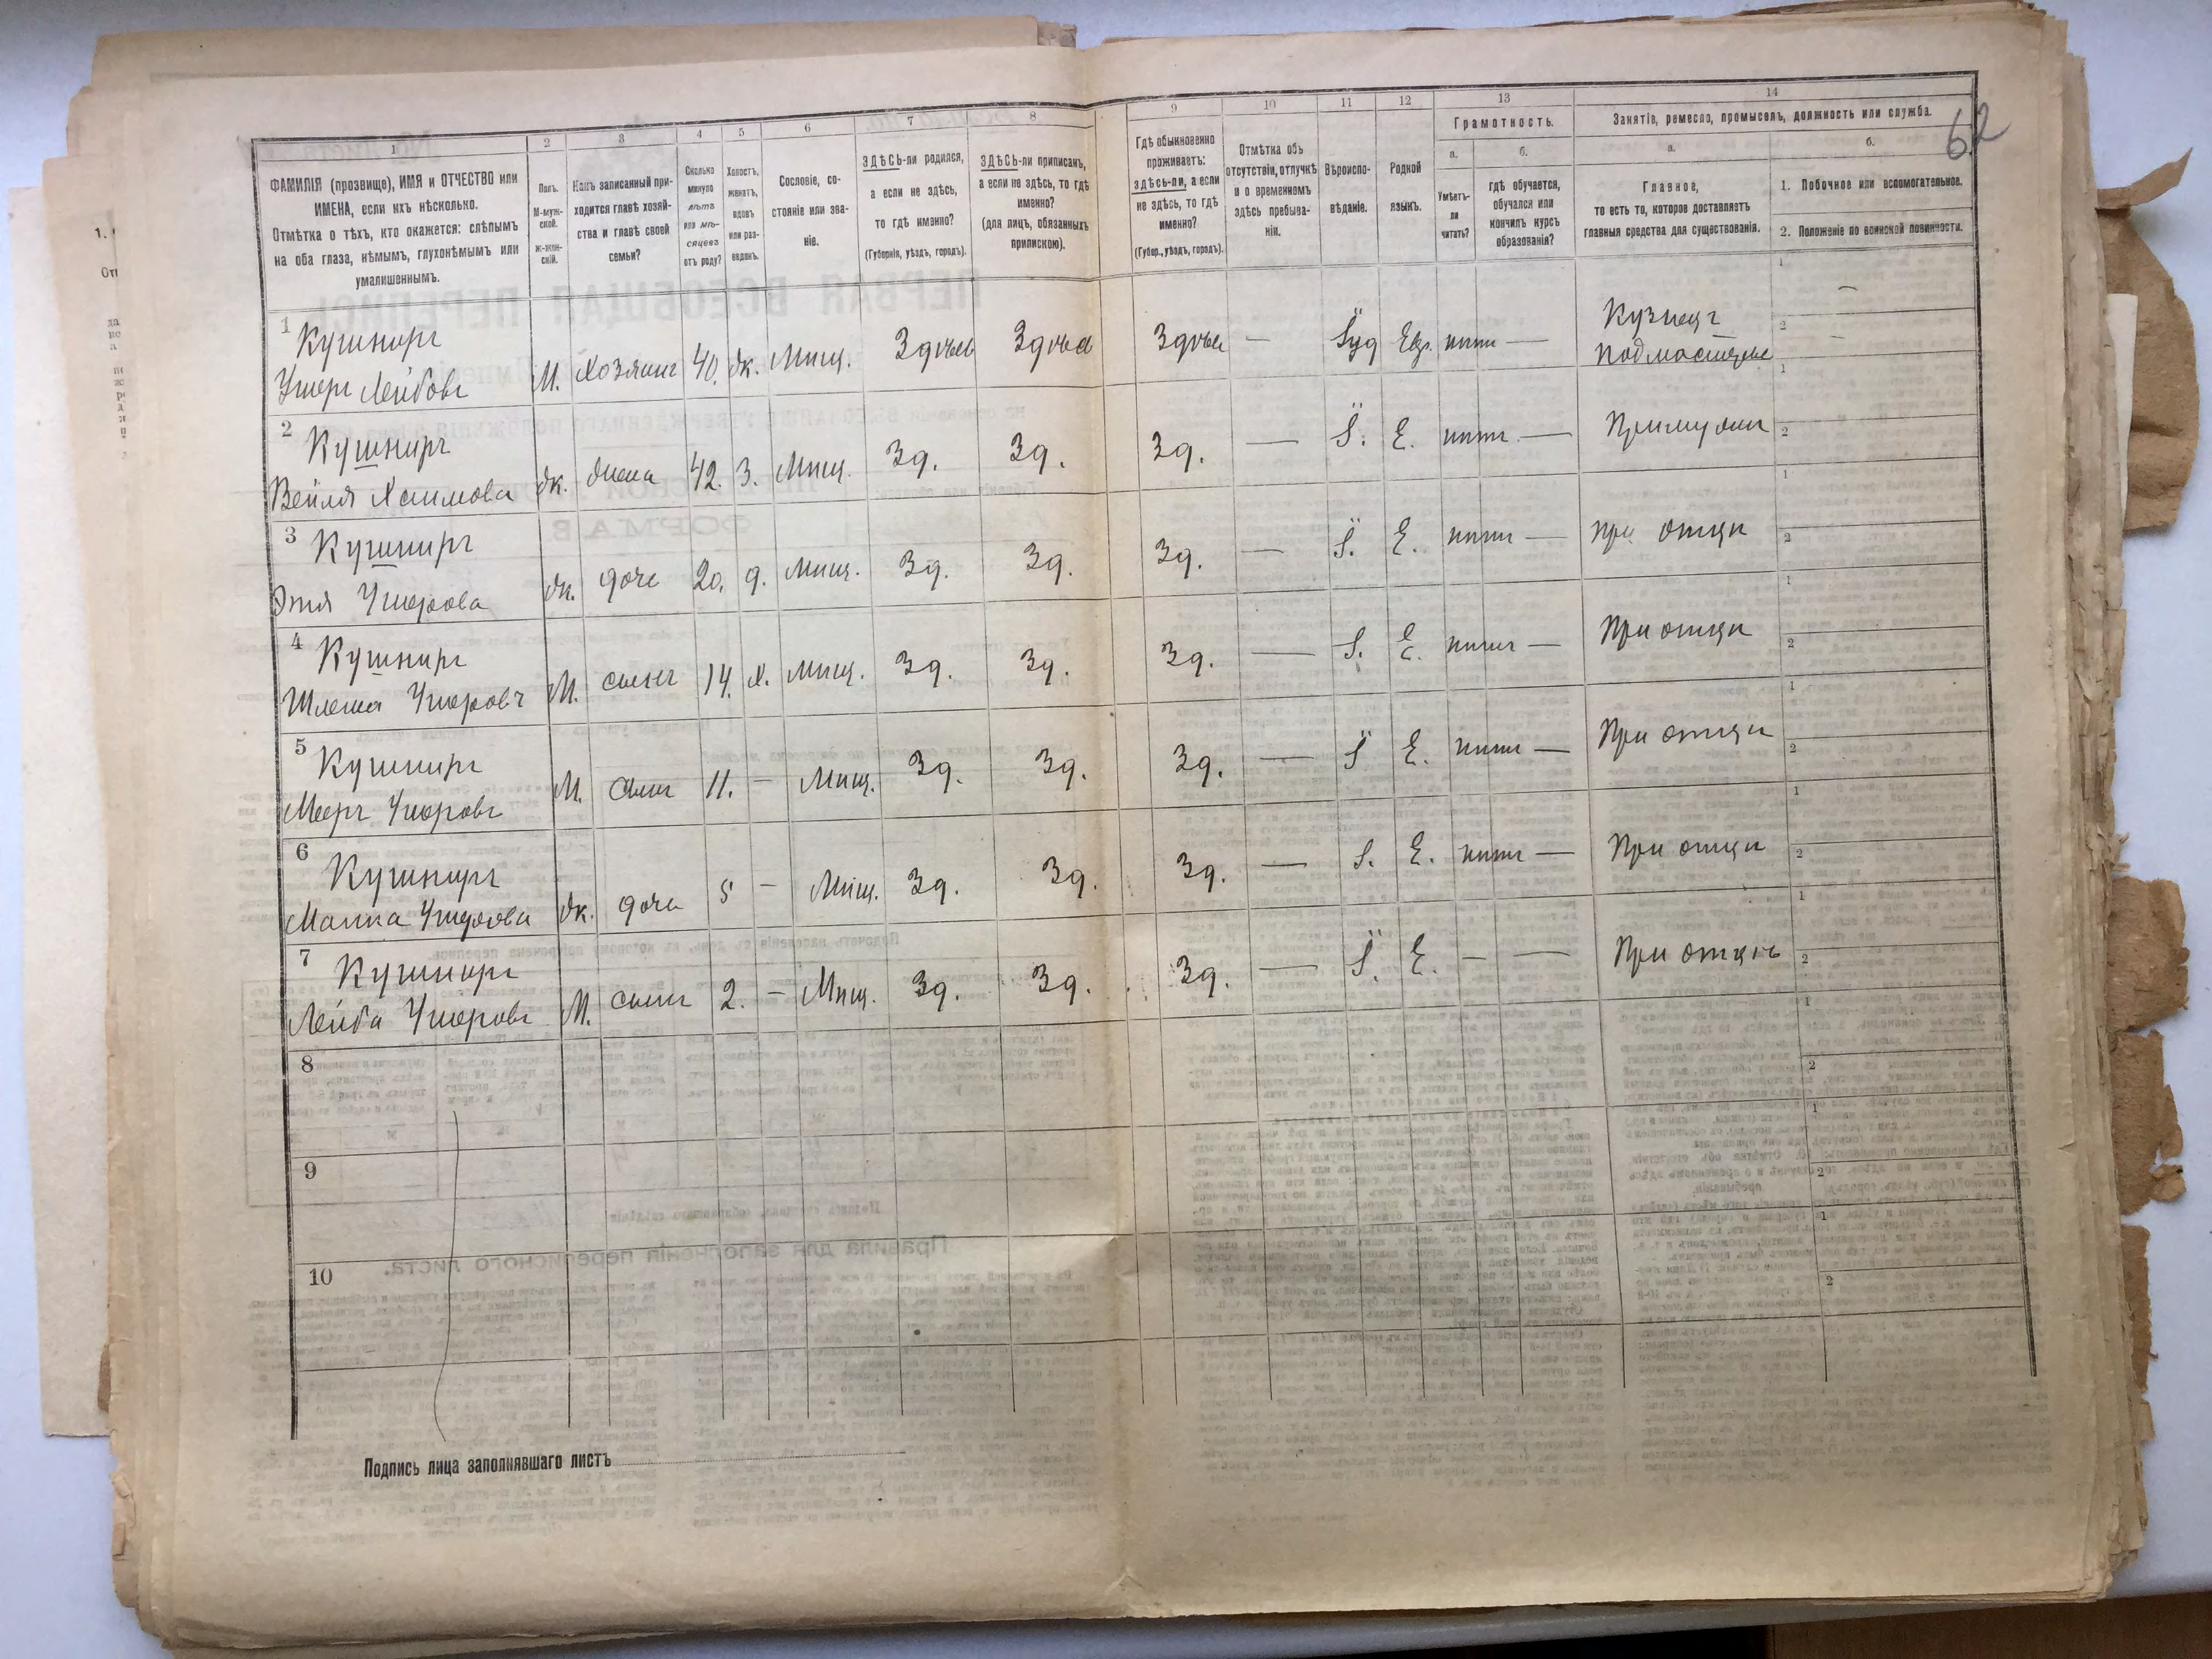 62
1
2
3
4
5
6
7
8
9
10
11
12
13
14
ФАМИЛІЯ (прозвище), ИМЯ и ОТЧЕСТВО или
ИМЕНА, если ихъ нѣсколько.
Отмѣтка о тѣхъ, кто окажется: слѣпымъ
на оба глаза, нѣмымъ, глухонѣмымъ или
умалишеннымъ.
Полъ.
М-муж-
ской.
ж-жен-
скій.
Какъ записанный при-
ходится главѣ хозяй-
ства и главѣ своей
семьи?
Сколько
минуло
лѣтъ
или мѣ-
сяцевъ
отъ роду?
Холостъ,
женатъ,
вдовъ
или раз-
веденъ.
Сословіе, со-
стояніе или зва-
ніе.
ЗДѢСЬ-ли родился,
а если не здѣсь,
то гдѣ именно?
(Губернія, уѣздъ, городъ).
ЗДѢСЬ-ли приписанъ,
а если не здѣсь, то гдѣ
именно?
(для лицъ, обязанныхъ
припискою).
Гдѣ обыкновенно
проживаетъ:
здѣсь-ли, а если
не здѣсь, то гдѣ
именно?
(Губер., уѣздъ, городъ).
Отмѣтка объ
отсутствіи, отлучкѣ
и о временномъ
здѣсь пребыва-
ніи.
Вѣроиспо-
вѣданіе.
Родной
языкъ.
Грамотность.
а.
Умѣетъ-
ли
читать?
б.
гдѣ обучается,
обучался или
кончилъ курсъ
образованія?
Занятіе, ремесло, промыселъ, должность или служба.
а.
Главное,
то есть то, которое доставляетъ
главныя средства для существованія.
б.
1. Побочное или вспомогательное.
2. Положеніе по воинской повинности.
1 Кушниръ
Ушеръ Лейбовъ М. Хозяинъ 40. ж. Мѣщ. Здѣсь Здѣсь Здѣсь — Іуд Евр. нѣтъ — Кузнецъ
подмастерье
2 Кушниръ
Вейля Хаимова ж. жена 42. З. Мѣщ. Зд. Зд. Зд. — І. Е. нѣтъ — При мужѣ
3 Кушниръ
Этя Ушерова ж. дочь 20. д. Мѣщ. Зд. Зд. Зд. — І. Е. нѣтъ — При отцѣ
4 Кушниръ
Шлема Ушеровъ М. сынъ 14. х. Мѣщ. Зд. Зд. Зд. — І. Е. нѣтъ — При отцѣ
5 Кушниръ
Мееръ Ушеровъ М. сынъ 11. — Мѣщ. Зд. Зд. Зд. — І Е. нѣтъ — При отцѣ
6 Кушниръ
Малка Ушерова ж. дочь 5 — Мѣщ. Зд. Зд. Зд. — І. Е. нѣтъ — При отцѣ
7 Кушниръ
Лейба Ушеровъ М. сынъ 2. — Мѣщ. Зд. Зд. Зд. — І. Е. — — При отцѣ
8
9
10
Подпись лица заполнявшаго листъ